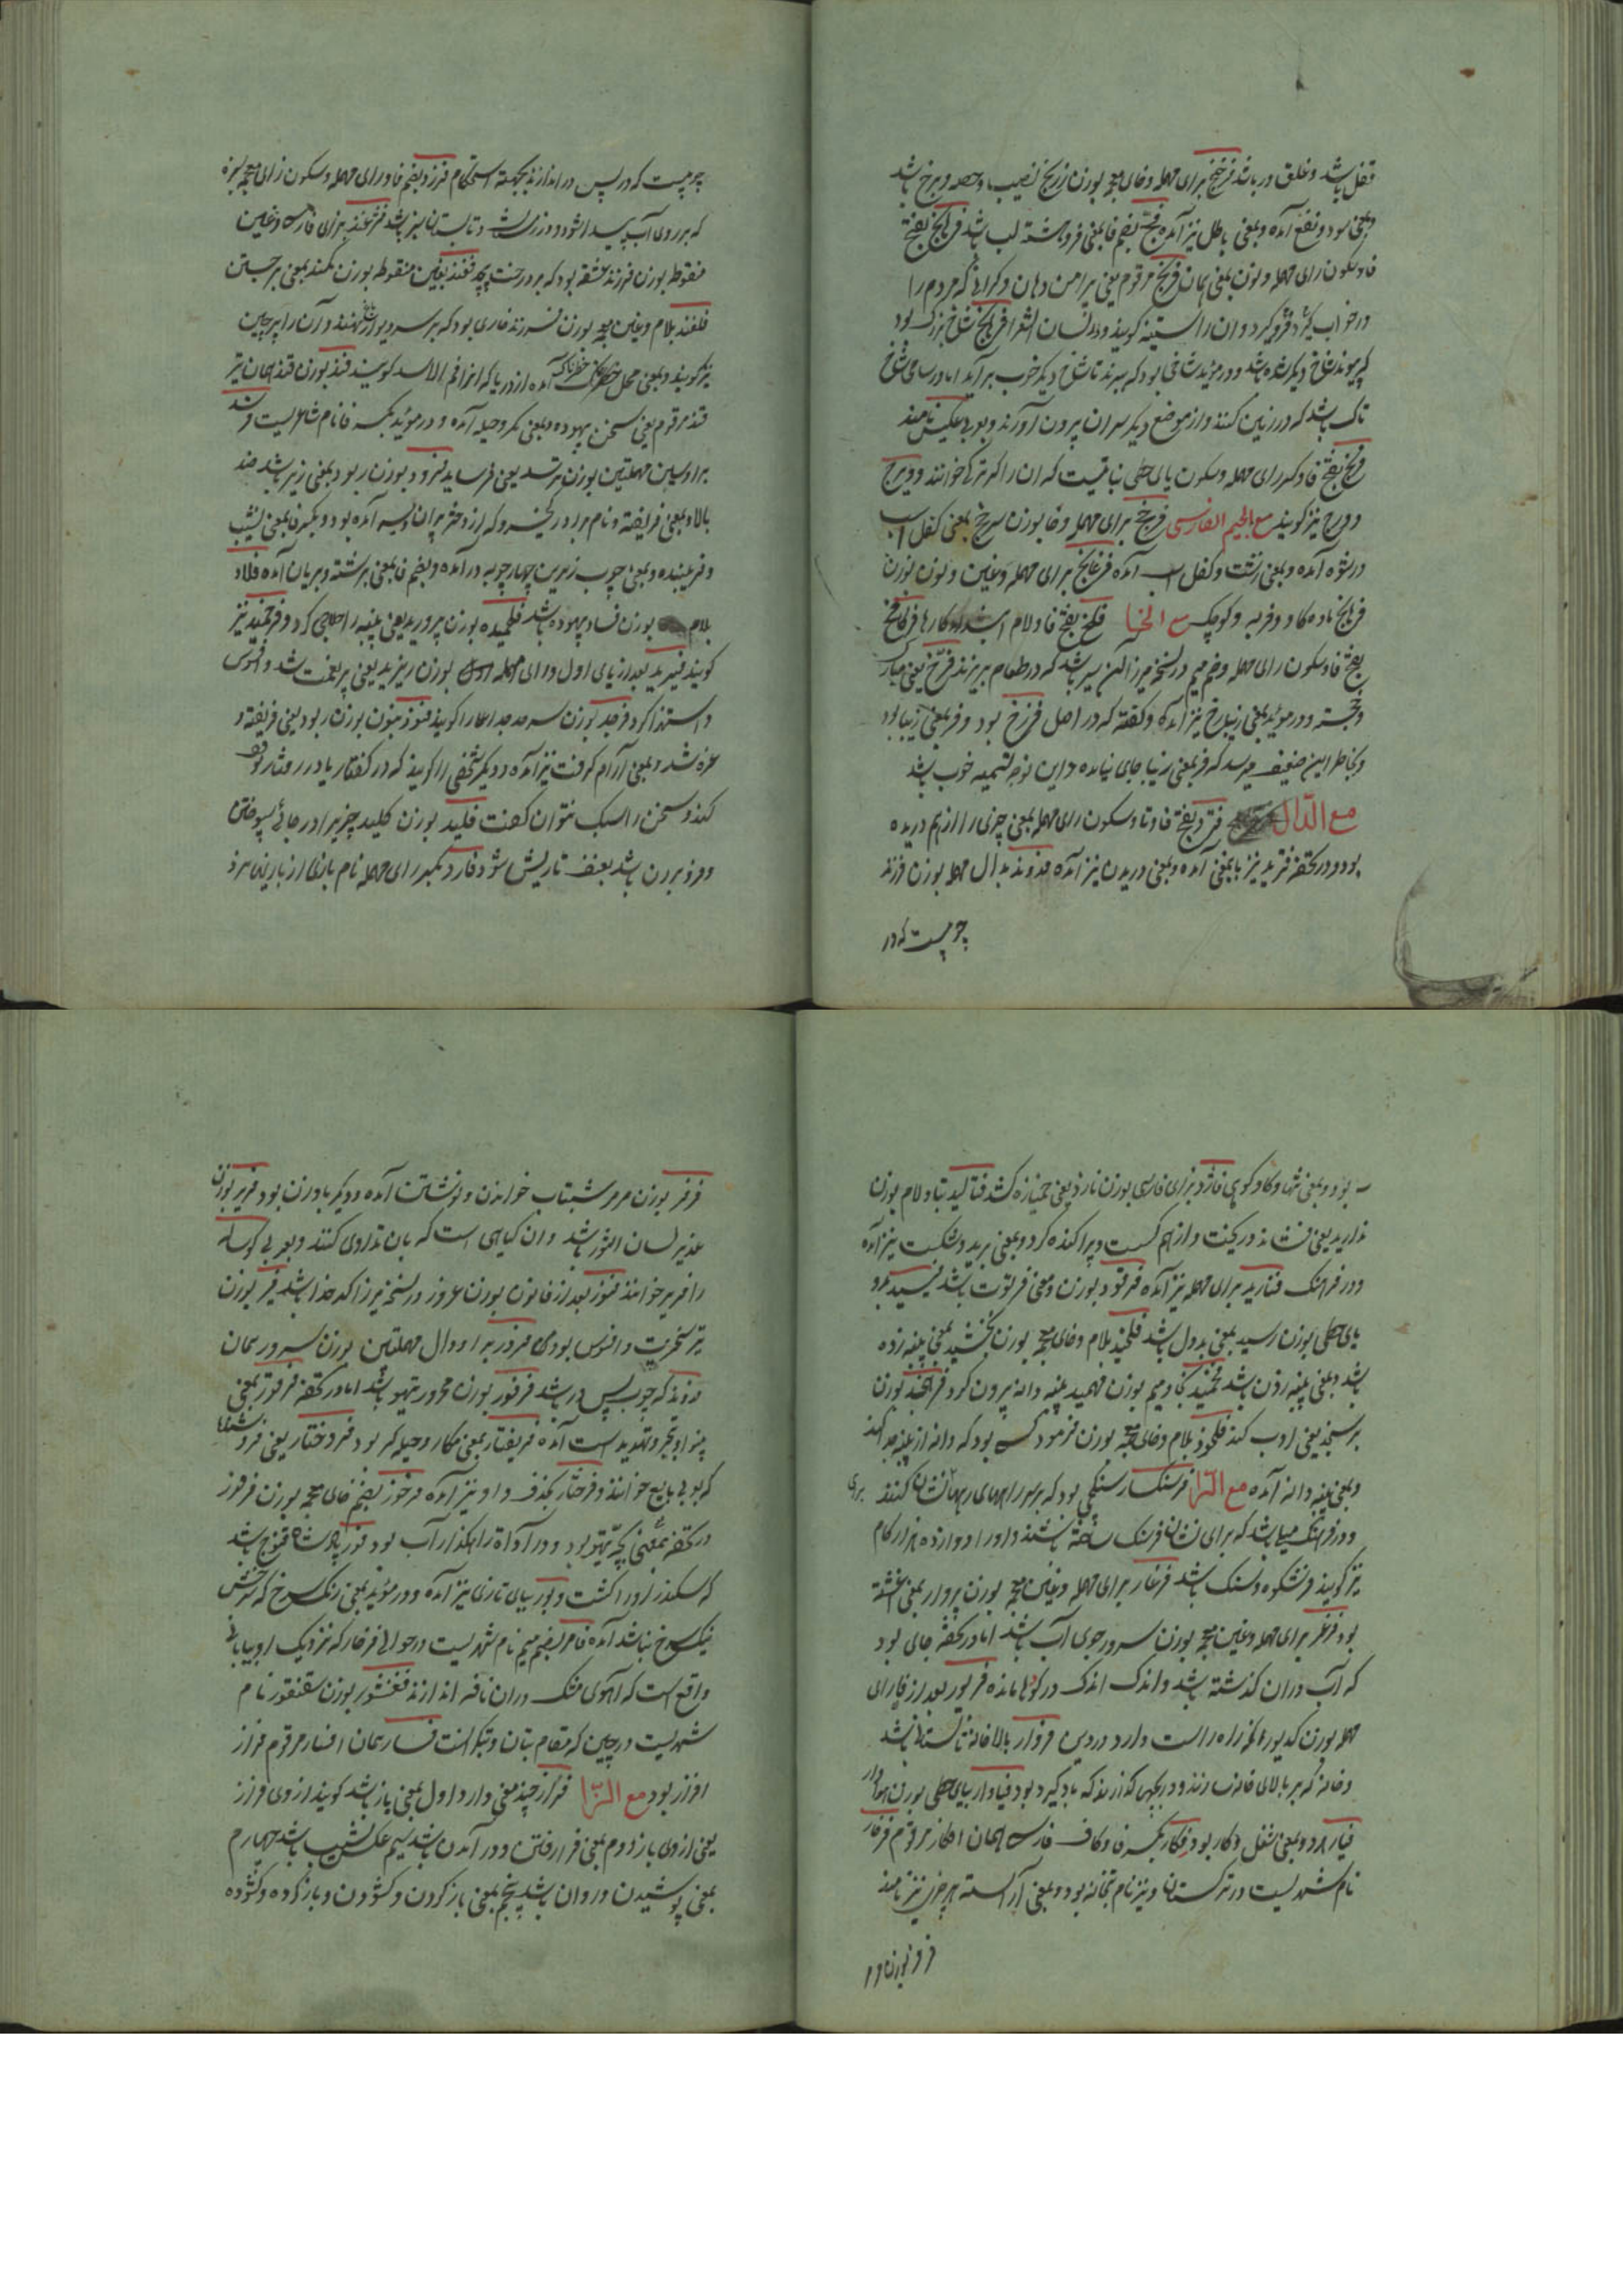 قفل باشد و غلق در باشد فرخج برای مهمله و خای معجمه بوزن زرنج نصیب و حصه و برخ باشد
و بمعنی سود و نفع آمده و بمعنی باطل نیز آمده فج بضم فا بمعنی فروهشته لب باشد فرنج بفتح
فا و سکون رای مهمله و نون بمعنی همان مرقوم یعنی پیرامن دهان و که مردم را
در خواب گیرد و فرو گیرد و آن را استنبه گویند و در لسان الشعرا شاخ بزرگ بود
که پیوند شاخ دیگر شده باشد و در موید شاخی بود که ببرند تا شاخ دیگر خوب برآید اما در سامی شاخ
تاک باشد که در زمین کنند و از موضع دیگر سر آن بیرون آورند و بعربی عکیس نامند
بفتح فا و کسر رای مهمله و سکون یای حطی نباتیست که آن را اگر ترکی خوانند و ویرج
و ورج نیز گویند مع الجیم الفارسی فرخج برای مهمله و خا بوزن سرخج بمعنی کفل اسب
در شوه آمده و بمعنی زشت و کفل اسب آمده فرغانج برای مهمله و غین و نون بوزن
فرهانج ماده گاو و فربه و کوچک مع الخا فلخ بفتح فا و لام ابتدای کارها
بفتح فا و سکون رای مهمله و ضم میم در نسخه میرزا آهن سیر باشد که در طعام بریزند فرخ یعنی مبارک
و خجسته و در موید بمعنی زیبا رخ نیز آمده و گفته که در اصل فررخ بود و فر بمعنی زیبا بود
و بخاطر این ضعیف میرسد که فر بمعنی زیبا جای نیامده و این نوجه تسمیه خوب باشد
مع الدال فترد بفتح فا و تا و سکون رای مهمله بمعنی چیزی را از هم دریده
بود و در تحفه فترید نیز باین معنی آمده و بمعنی دریدن نیز آمده فدوند بدال مهمله بوزن فرزند
چوبیست که در
چوبیست که در پس در اندازند بجهت استحکام فرزد بضم فا و رای مهمله و سکون زای معجمه سبزه
که بر روی آب پیدا شود و در زمستان و تابستان سبز باشد فرغند برای فارسی و غین
منقوطه بوزن فرزند عشقه بود که بر درخت پیچد فغند بغین منقوطه بوزن کمند بمعنی برجستن
فلغند بلام و غین معجمه بوزن فرزند خاری بود که بر سر دیوار نهند و آن را پرچین
نیز گویند و بمعنی محل خطرناک آمده از دریا که انرا فم الاسد گویند فند بوزن قند همان
فند مرقوم یعنی سخن بیهوده و بمعنی مکر و حیله آمده و در موید بکسر فا نام شاعریست
برا و سین مهملتین بوزن ترسد یعنی فرساید فرود بوزن ربود بمعنی زیر باشد ضد
بالا و بمعنی فریفته و نام برادر کیخسرو که از دختر پیران ویسه آمده بود و بکسر فا بمعنی نشیب
و فریبنده و بمعنی چوب زیرین چهارچوبه در آمده و بضم فا بمعنی برشته و بریان آمده فلاد
بلام بوزن فساد بیهوده باشد فلخیده بوزن پروریده یعنی پنبه را حلاجی کرد و نیز
گویند بعد از یای اول و رای مهمله بوزن ریزید یعنی پر نعمت شد و افسوس
و استهزا کرد فرجد بوزن سرحد جد اعلا را گویند فنود بنون بوزن ربود یعنی فریفته و
غره شد و بمعنی آرام گرفت نیز آمده و دیگر شخصی را گویند که در گفتار یا در رفتار توقف
کند و سخن را سبک نتوان گفت فلید بوزن کلید چیزی را در جائی سپوختن
و فرو بردن باشد بعنف تا ریش شود فارد بکسر رای مهمله نام بازی از بازیهای نرد
بود و بمعنی تنها و گاو کوهی فاژد بزای فارسی بوزن نازد یعنی خمیازه کشد فتالید بتا و لام بوزن
نالید یعنی فشاند و ریخت و از هم گسست و پراکنده کرد و بمعنی برید و شکست نیز آمده
و در فرهنگ فتارید برای مهمله نیز آمده فرتود بوزن و معنی فرتوت باشد
یای حطی بوزن رسید بمعنی بدول باشد فلخید بلام و خای معجمه بوزن بخشید یعنی پنبه زده
باشد و بمعنی پنبه زدن باشد فخمید بخا و میم بوزن فهمید پنبه دانه بیرون کرد فرهنجد بوزن
برسنجد یعنی ادب کند فلخود بلام و خای معجمه بوزن فرمود کسی بود که دانه از پنبه جدا کند
و بمعنی پنبه دانه آمده مع الرا فرسنگسار سنگی بود که بر سر راههای بجهت نشان کنند
و در فرهنگ میلی باشد که برای نشان فرسنگ ساخته باشند و او را دوازده هزار گام
نیز گویند فرشکوه و سنگ باشد فرغار برای مهمله و غین معجمه بوزن پروار بمعنی آغشته
بود فرغر برای مهمله و غین معجمه بوزن سرور جوی آب باشد اما در تحفه جائی بود
که آب در آن گذشته باشد و اندک اندک در گوها مانده فریور بعد از فا رای
مهمله بوزن کدیور آنکه راه راست دارد در دین فروار بالاخانه تابستانی باشد
و خانه که بر بالای خانه سازند و دریچهای گذارند که بادگیر بود فیاوار بیای حطی بوزن هوادار
فیار آمده و بمعنی شغل و کار بود فکار بکسر فا و کاف فارسی همان افکار مرقوم فرخار
نام شهریست در ترکستان و نیز نام بتخانه بود و بمعنی آراسته هر چیز نیز نامند
فرفر بوزن
فرفر بوزن مرمر شتاب خواندن و نوشتن آمده و دیگر باد زن بود فریر بوزن
غدیر لسان الثور باشد و آن گیاهی است که بآن تداوی کنند و بعربی گوساله
را فریر خوانند فنوز بعد از فا نون بوزن عروز در نسخه میرزا کدخدا باشد فیر بوزن
تیر سخریت و افسوس بودی فردر برا و دال مهملتین بوزن سرور همان
فدوند که چوب پس در باشد فرفور بوزن محرور تیهو باشد اما در تحفه فرفور بمعنی
است آمده فریفتار بمعنی مکار و حیله گر بود فروختار یعنی فروشنده
که بعربی بایع خوانند و فرختار بحذف واو نیز آمده فرخور بضم خای معجمه بوزن فرفور
در تحفه بمعنی بچه تیهو بود و در آداة راهگذار آب بود فور پادشاه قنوج باشد
که سکندر او را کشت و بور ببای تازی نیز آمده و در موید بمعنی رنگ سرخ که سرخیش
نیک سرخ نباشد آمده فامر بضم میم نام شهریست در حوالی فرخار که نزدیک او بیابانی
واقع است که آهوی مشک در آن نافه اندازد فغنشور بوزن سقنقور نام
شهریست در چین که مقام بتان و بتگرانست فسار همان افسار مرقوم فراز
افراز بود مع الزا فراز چند معنی دارد اول بمعنی باز باشد گویند از وی فراز
یعنی از وی باز دوم بمعنی فرا رفتن و در آمدن باشد سیم عکس نشیب باشد چهارم
بمعنی پوشیدن و روان باشد پنجم بمعنی باز کردن و گشودن و باز کرده و گشوده